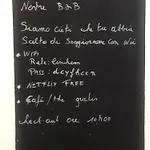 Nostro B&B
Siamo che tu abbia
Scelto di Soggiornare con Noi
• WiFi
Rete:
Pass:
• NETFLIX FREE
• Café/the gratis
check-out ore 10h00